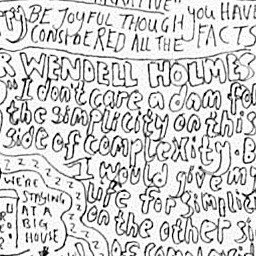 BE JOYFUL THOUGH YOU HAVE
CONSIDERED ALL THE FACTS
R WENDELL HOLMES
"I don't care a dam fo
the simplicity on this
side of complexity. B
I would give my
life for simplici
on the other si
of complexit
WE'RE
STAYING
AT A
BIG
HOUSE